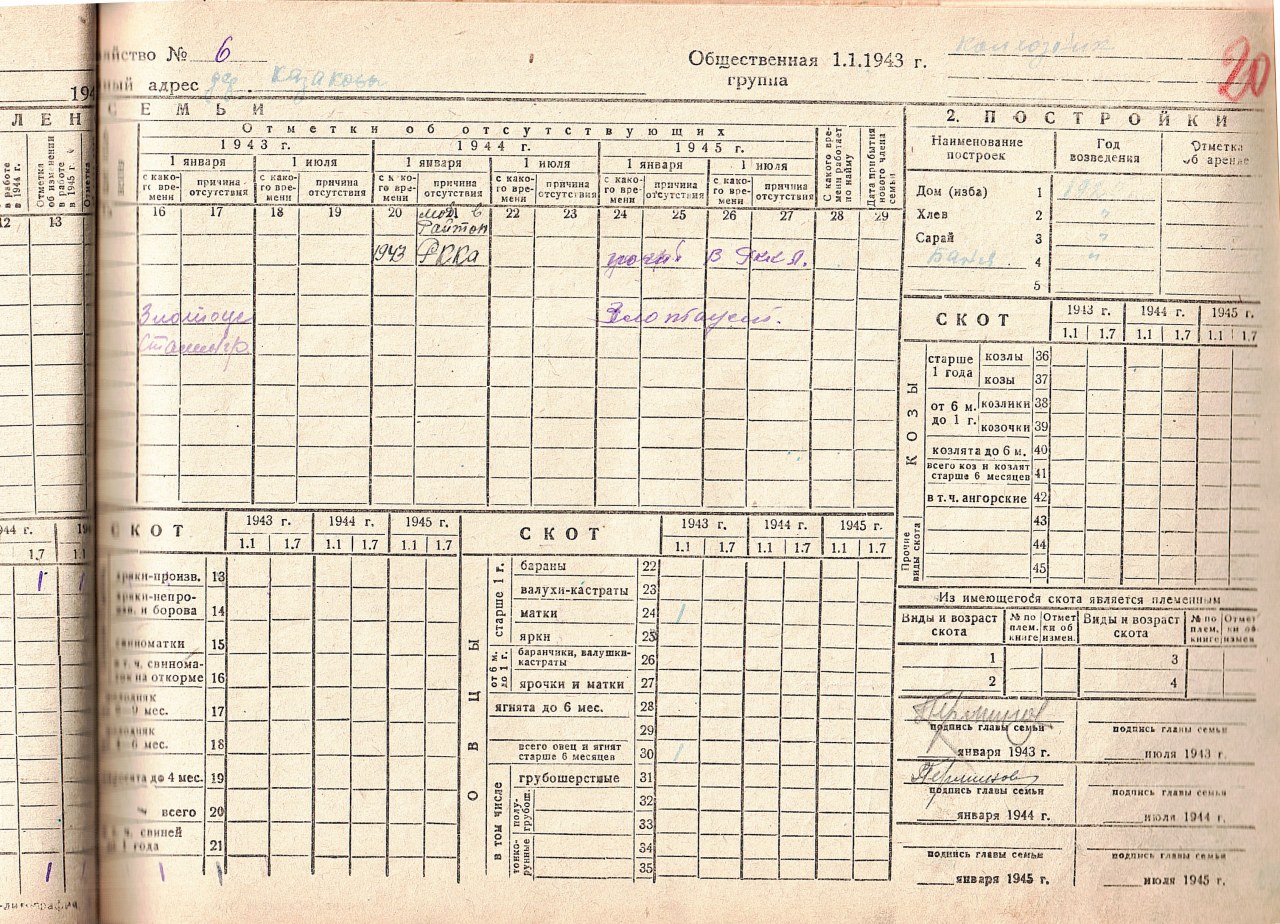 йство № 6
Общественная 1.1.1943 г.
группа
колхозник
20
ный адрес дер. Казаковы
194
ЛЕН
СЕМЬИ
Отметки об отсутствующих
1943 г. 1944 г. 1945 г.
1 января 1 июля 1 января 1 июля 1 января 1 июля
с како-го вре-мени причина отсутствия с како-го вре-мени причина отсутствия с како-го вре-мени причина отсутствия с како-го вре-мени причина отсутствия с како-го вре-мени причина отсутствия с како-го вре-мени причина отсутствия
С какого вре-мени работает по найму
Дата прибытия нового члена семьи
в работе в 1944 г.
Отметка об изменении в работе в 1945 г.
12 13 16 17 18 19 20 21 22 23 24 25 26 27 28 29
1943 РККА
в РККА.
Златоуст.
2. ПОСТРОЙКИ
Наименование построек Год возведения Отметка об аренде
Дом (изба) 1
Хлев 2 "
Сарай 3 "
Баня 4 "
5
СКОТ 1943 г. 1944 г. 1945 г.
1.1 1.7 1.1 1.7 1.1 1.7
КОЗЫ
старше 1 года
козлы 36
козы 37
от 6 м. до 1 г.
козлики 38
козочки 39
козлята до 6 м. 40
всего коз и козлят старше 6 месяцев 41
в т. ч. ангорские 42
Прочие виды скота
43
44
45
44 г.
1.7 1.1
1 1
СКОТ 1943 г. 1944 г. 1945 г.
1.1 1.7 1.1 1.7 1.1 1.7
ряки-произв. 13
ряки-непро-
и борова 14
иноматки 15
т. ч. свинома-
на откорме 16
мес. 17
мес. 18
до 4 мес. 19
всего 20
ч. свиней
1 года 21
1 1 1
СКОТ 1943 г. 1944 г. 1945 г.
1.1 1.7 1.1 1.7 1.1 1.7
ОВЦЫ
старше 1 г.
бараны 22
валухи-кастраты 23
матки 24 1
ярки 25
от 6 м. до 1 г.
баранчики, валушки-кастраты 26
ярочки и матки 27
ягнята до 6 мес. 28
29
всего овец и ягнят старше 6 месяцев 30 1
в том числе
грубошерстные 31
полу-грубош.
32
33
тонко-рунные
34
35
Из имеющегося скота является племенным
Виды и возраст скота № по плем. книге Отмет-ки об измен. Виды и возраст скота № по плем. книге Отмет-ки об измен.
1 3
2 4
Перминов
подпись главы семьи подпись главы семьи
января 1943 г. июля 1943 г.
Перминов
подпись главы семьи подпись главы семьи
января 1944 г. июля 1944 г.
подпись главы семьи подпись главы семьи
января 1945 г. июля 1945 г.